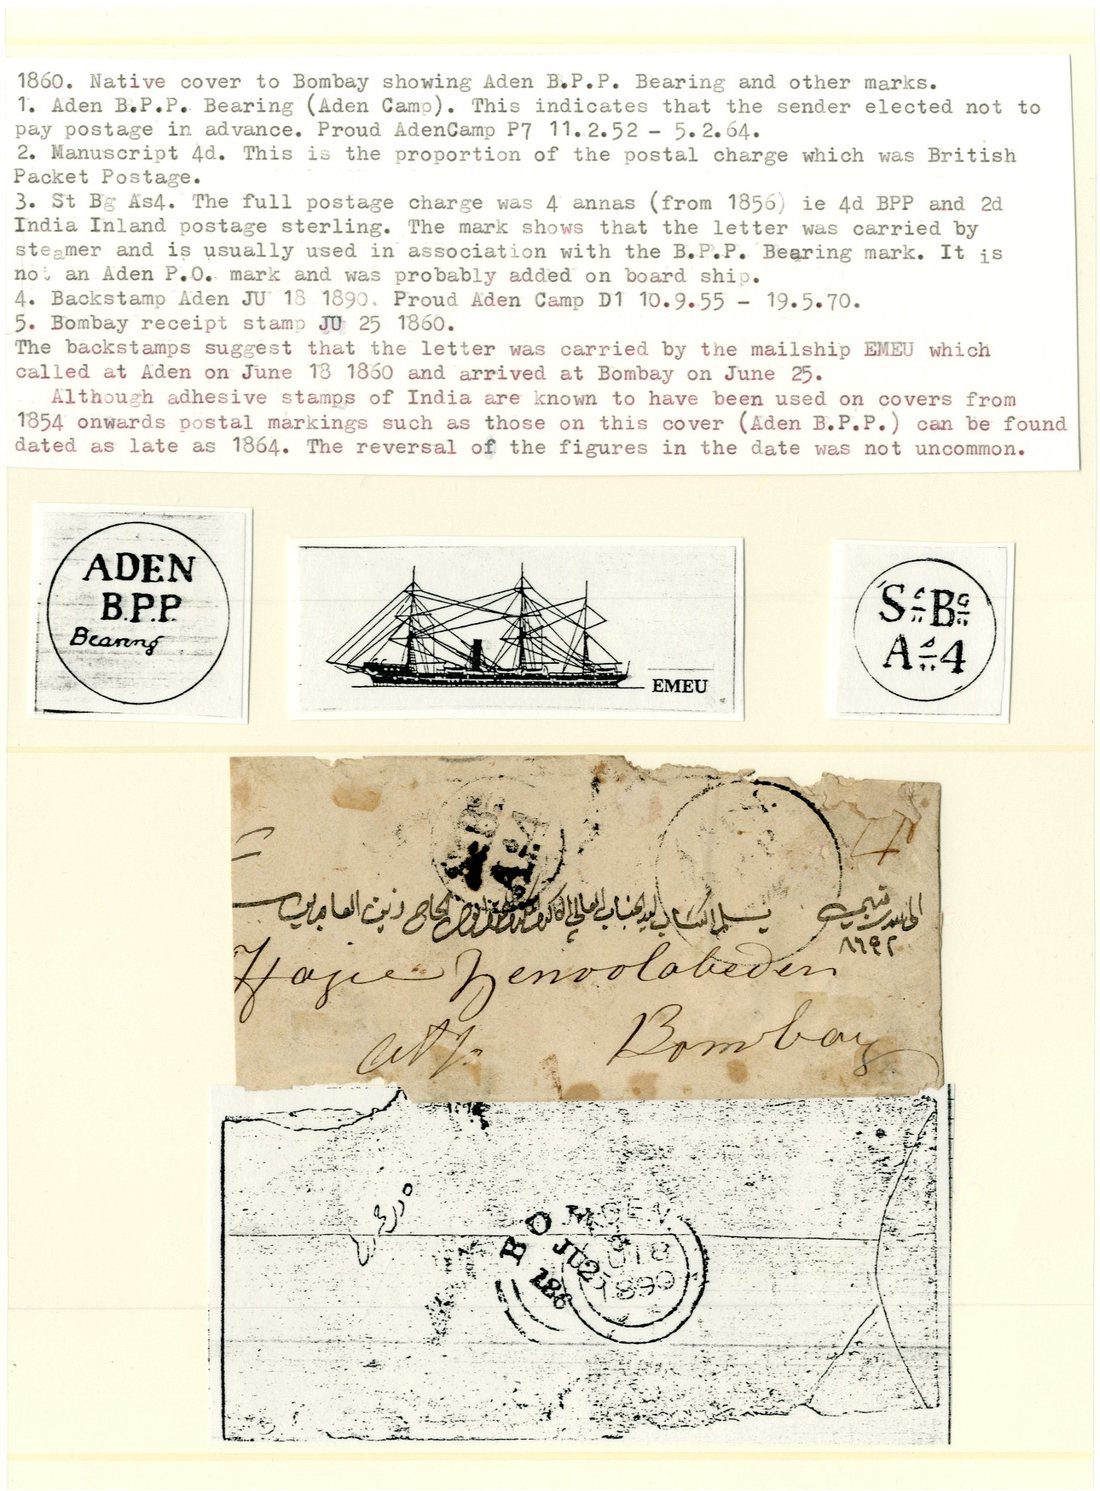 1860. Native cover to Bombay showing Aden B.P.P. Bearing and other marks.
1. Aden B.P.P. Bearing (Aden Camp). This indicates that the sender elected not to
pay postage in advance. Proud AdenCamp P7 11.2.52 - 5.2.64.
2. Manuscript 4d. This is the proportion of the postal charge which was British
Packet Postage.
3. St Bg As4. The full postage charge was 4 annas (from 1856) ie 4d BPP and 2d
India Inland postage sterling. The mark shows that the letter was carried by
steamer and is usually used in association with the B.P.P. Bearing mark. It is
not an Aden P.O. mark and was probably added on board ship.
4. Backstamp Aden JU 18 1890. Proud Aden Camp D1 10.9.55 - 19.5.70.
5. Bombay receipt stamp JU 25 1860.
The backstamps suggest that the letter was carried by the mailship EMEU which
called at Aden on June 18 1860 and arrived at Bombay on June 25.
Although adhesive stamps of India are known to have been used on covers from
1854 onwards postal markings such as those on this cover (Aden B.P.P.) can be found
dated as late as 1864. The reversal of the figures in the date was not uncommon.
ADEN
B.P.P.
Bearing
EMEU
St Bg
As 4
الى بندر
٨٦٤٢
الحاج زين العابدين
Hajie Zenoolabeden
Bombay
BOM
JU 2
186
JU 18